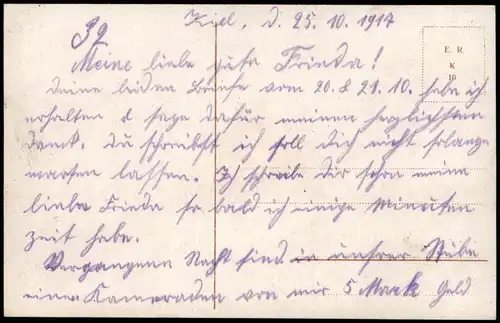 39
Kiel, d. 25. 10. 1917
E. R.
K
10
Meine liebe gute Frieda!
deine beiden Briefe vom 20. & 21. 10. habe ich
erhalten & sage dafür meinen herzlichsten
Dank. du schreibst ich soll dich nicht solange
warten lassen. Ich schreibe dir schon meine
liebe Frieda so bald ich einige Minuten
Zeit habe.
Vergangene Nacht sind in unsrer Stube
einen Kameraden von mir 5 Mark Geld